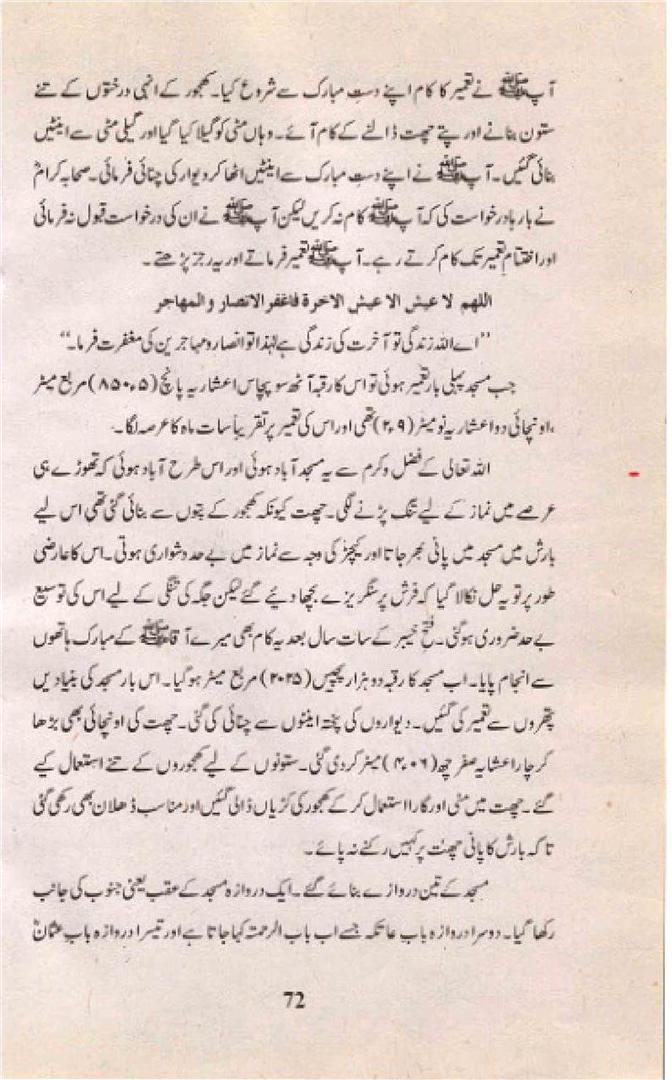 آپ ﷺ نے تعمیر کا کام اپنے دستِ مبارک سے شروع کیا۔ کھجور کے انہی درختوں کے تنے
ستون بنانے اور پتے چھت ڈالنے کے کام آئے۔ وہاں مٹی کو گیلا کیا گیا اور گیلی مٹی سے اینٹیں
بنائی گئیں۔ آپ ﷺ نے اپنے دستِ مبارک سے اینٹیں اٹھا کر دیوار کی چنائی فرمائی۔ صحابہ کرامؓ
نے بارہا درخواست کی کہ آپ ﷺ کام نہ کریں لیکن آپ ﷺ نے ان کی درخواست قبول نہ فرمائی
اور اختتامِ تعمیر تک کام کرتے رہے۔ آپ ﷺ تعمیر فرماتے اور یہ رجز پڑھتے۔
اللهم لا عيش الا عيش الاخرة فاغفر الانصار والمهاجر
’’اے اللہ زندگی تو آخرت کی زندگی ہے لہٰذا تو انصار و مہاجرین کی مغفرت فرما۔‘‘
جب مسجد پہلی بار تعمیر ہوئی تو اس کا رقبہ آٹھ سو پچاس اعشاریہ پانچ (۸۵۰.۵) مربع میٹر
، اونچائی دو اعشاریہ نو میٹر (۲.۹) تھی اور اس کی تعمیر پر تقریباً سات ماہ کا عرصہ لگا۔
اللہ تعالی کے فضل و کرم سے یہ مسجد آباد ہوئی اور اس طرح آباد ہوئی کہ تھوڑے ہی
عرصے میں نماز کے لیے تنگ پڑنے لگی۔ چھت کیونکہ کھجور کے پتوں سے بنائی گئی تھی اس لیے
بارش میں مسجد میں پانی بھر جاتا اور کیچڑ کی وجہ سے نماز میں بے حد دشواری ہوتی۔ اس کا عارضی
طور پر تو یہ حل نکالا گیا کہ فرش پر سنگریزے بچھا دیئے گئے لیکن جگہ کی تنگی کے لیے اس کی توسیع
بے حد ضروری ہو گئی۔ فتح خیبر کے سات سال بعد یہ کام بھی میرے آقا ﷺ کے مبارک ہاتھوں
سے انجام پایا۔ اب مسجد کا رقبہ دو ہزار پچیس (۲۰۲۵) مربع میٹر ہو گیا۔ اس بار مسجد کی بنیادیں
پتھروں سے تعمیر کی گئیں۔ دیواروں کی پختہ اینٹوں سے چنائی کی گئی۔ چھت کی اونچائی بھی بڑھا
کر چار اعشایہ صفر چھ (۴.۰۶) میٹر کر دی گئی۔ ستونوں کے لیے کھجوروں کے تنے استعمال کیے
گئے۔ چھت میں مٹی اور گارا استعمال کر کے کھجور کی کڑیاں ڈالی گئیں اور مناسب ڈھلان بھی رکھی گئی
تا کہ بارش کا پانی چھت پر کہیں رکنے نہ پائے۔
مسجد کے تین دروازے بنائے گئے۔ ایک دروازہ مسجد کے عقب یعنی جنوب کی جانب
رکھا گیا۔ دوسرا دروازہ بابِ عاتکہ جسے اب باب الرحمتہ کہا جاتا ہے اور تیسرا دروازہ بابِ عثمانؓ
72